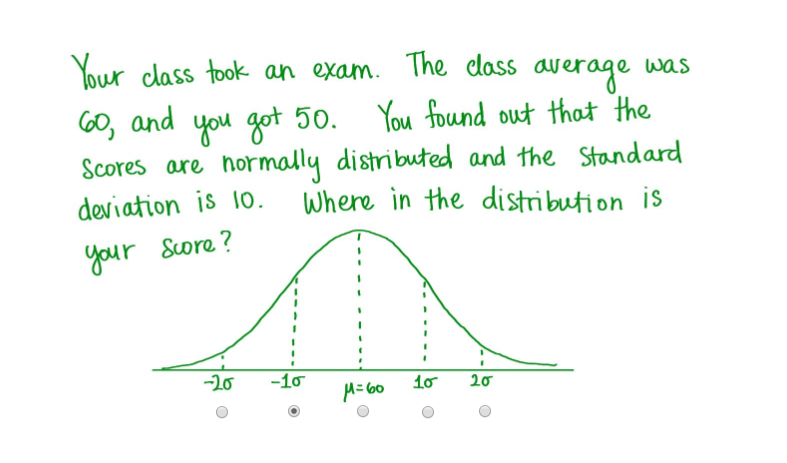 Your class took an exam. The class average was
60, and you got 50. You found out that the
Scores are normally distributed and the Standard
deviation is 10. Where in the distribution is
your Score?
-2σ -1σ μ=60 1σ 2σ